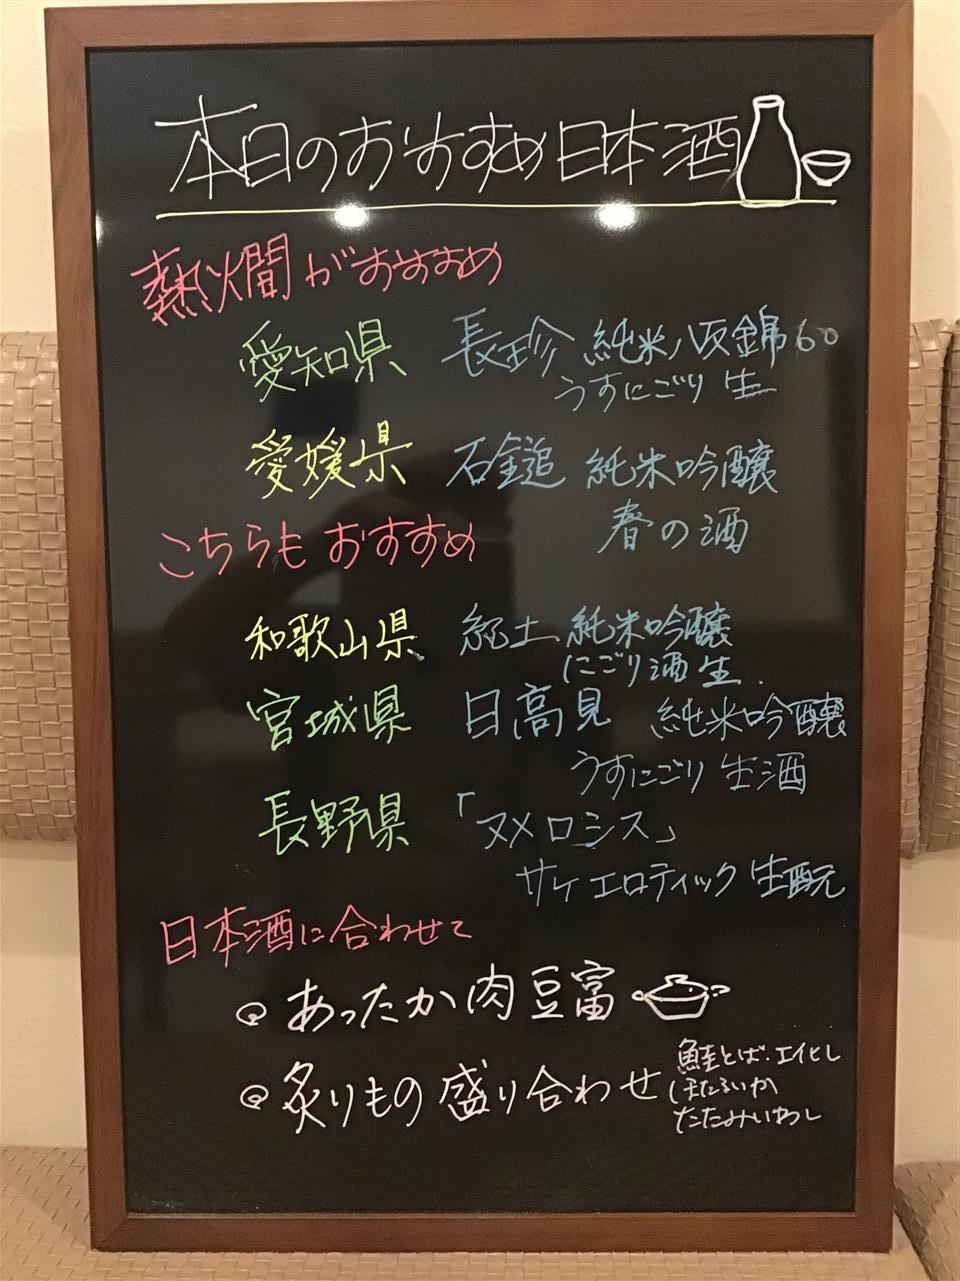 本日のおすすめ日本酒
熱火間がおすすめ
愛知県 長珍 純米八反錦60
うすにごり 生
愛媛県 石鎚 純米吟醸
春の酒
こちらもおすすめ
和歌山県 紀土 純米吟醸
にごり酒 生
宮城県 日高見 純米吟醸
うすにごり 生酒
長野県 「ヌメロシス」
サケ エロティック 生酛
日本酒に合わせて
あったか肉豆富
炙りもの盛り合わせ 鮭とば・エイヒレ
ほたるいか
たたみいわし